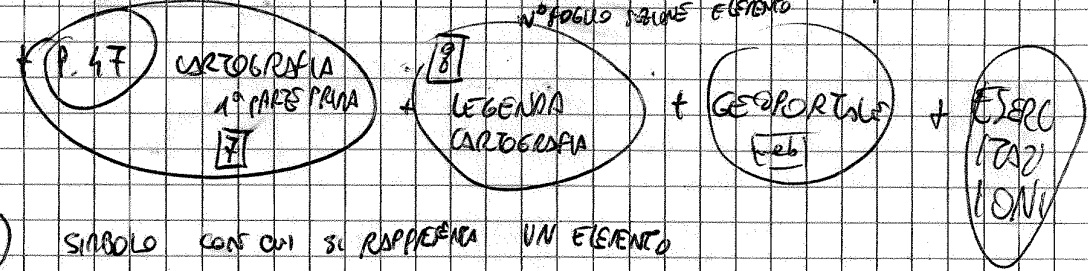 N° FOGLIO SEZIONE ELEMENTO
+ P. 47 CARTOGRAFIA
1ª PARTE PRIMA
7
+ 8
LEGENDA
CARTOGRAFIA
+ GEOPORTALE
+ ESERC
ITAZI
IONI
SIMBOLO CON CUI SI RAPPRESENTA UN ELEMENTO